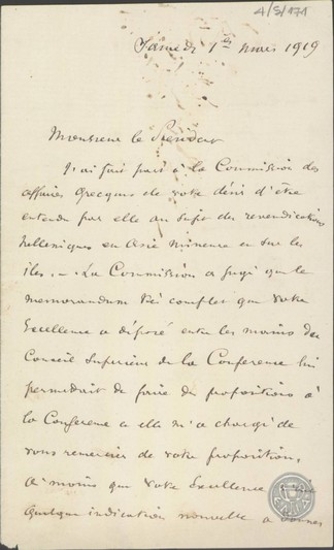 4/S/171
Samedi 1er mars 1919
Monsieur le Président
J'ai fait part à la Commission des
affaires Grecques de votre désir d'être
entendu par elle au sujet des revendications
helléniques en Asie Mineure et sur les
îles. — La Commission a jugé que le
memorandum très complet que Votre
Excellence a déposé entre les mains du
Conseil Supérieur de la Conférence lui
permettrait de faire des propositions à
la Conférence et elle m'a chargé de
vous remercier de votre proposition.
A moins que Votre Excellence
quelque indication nouvelle à donner